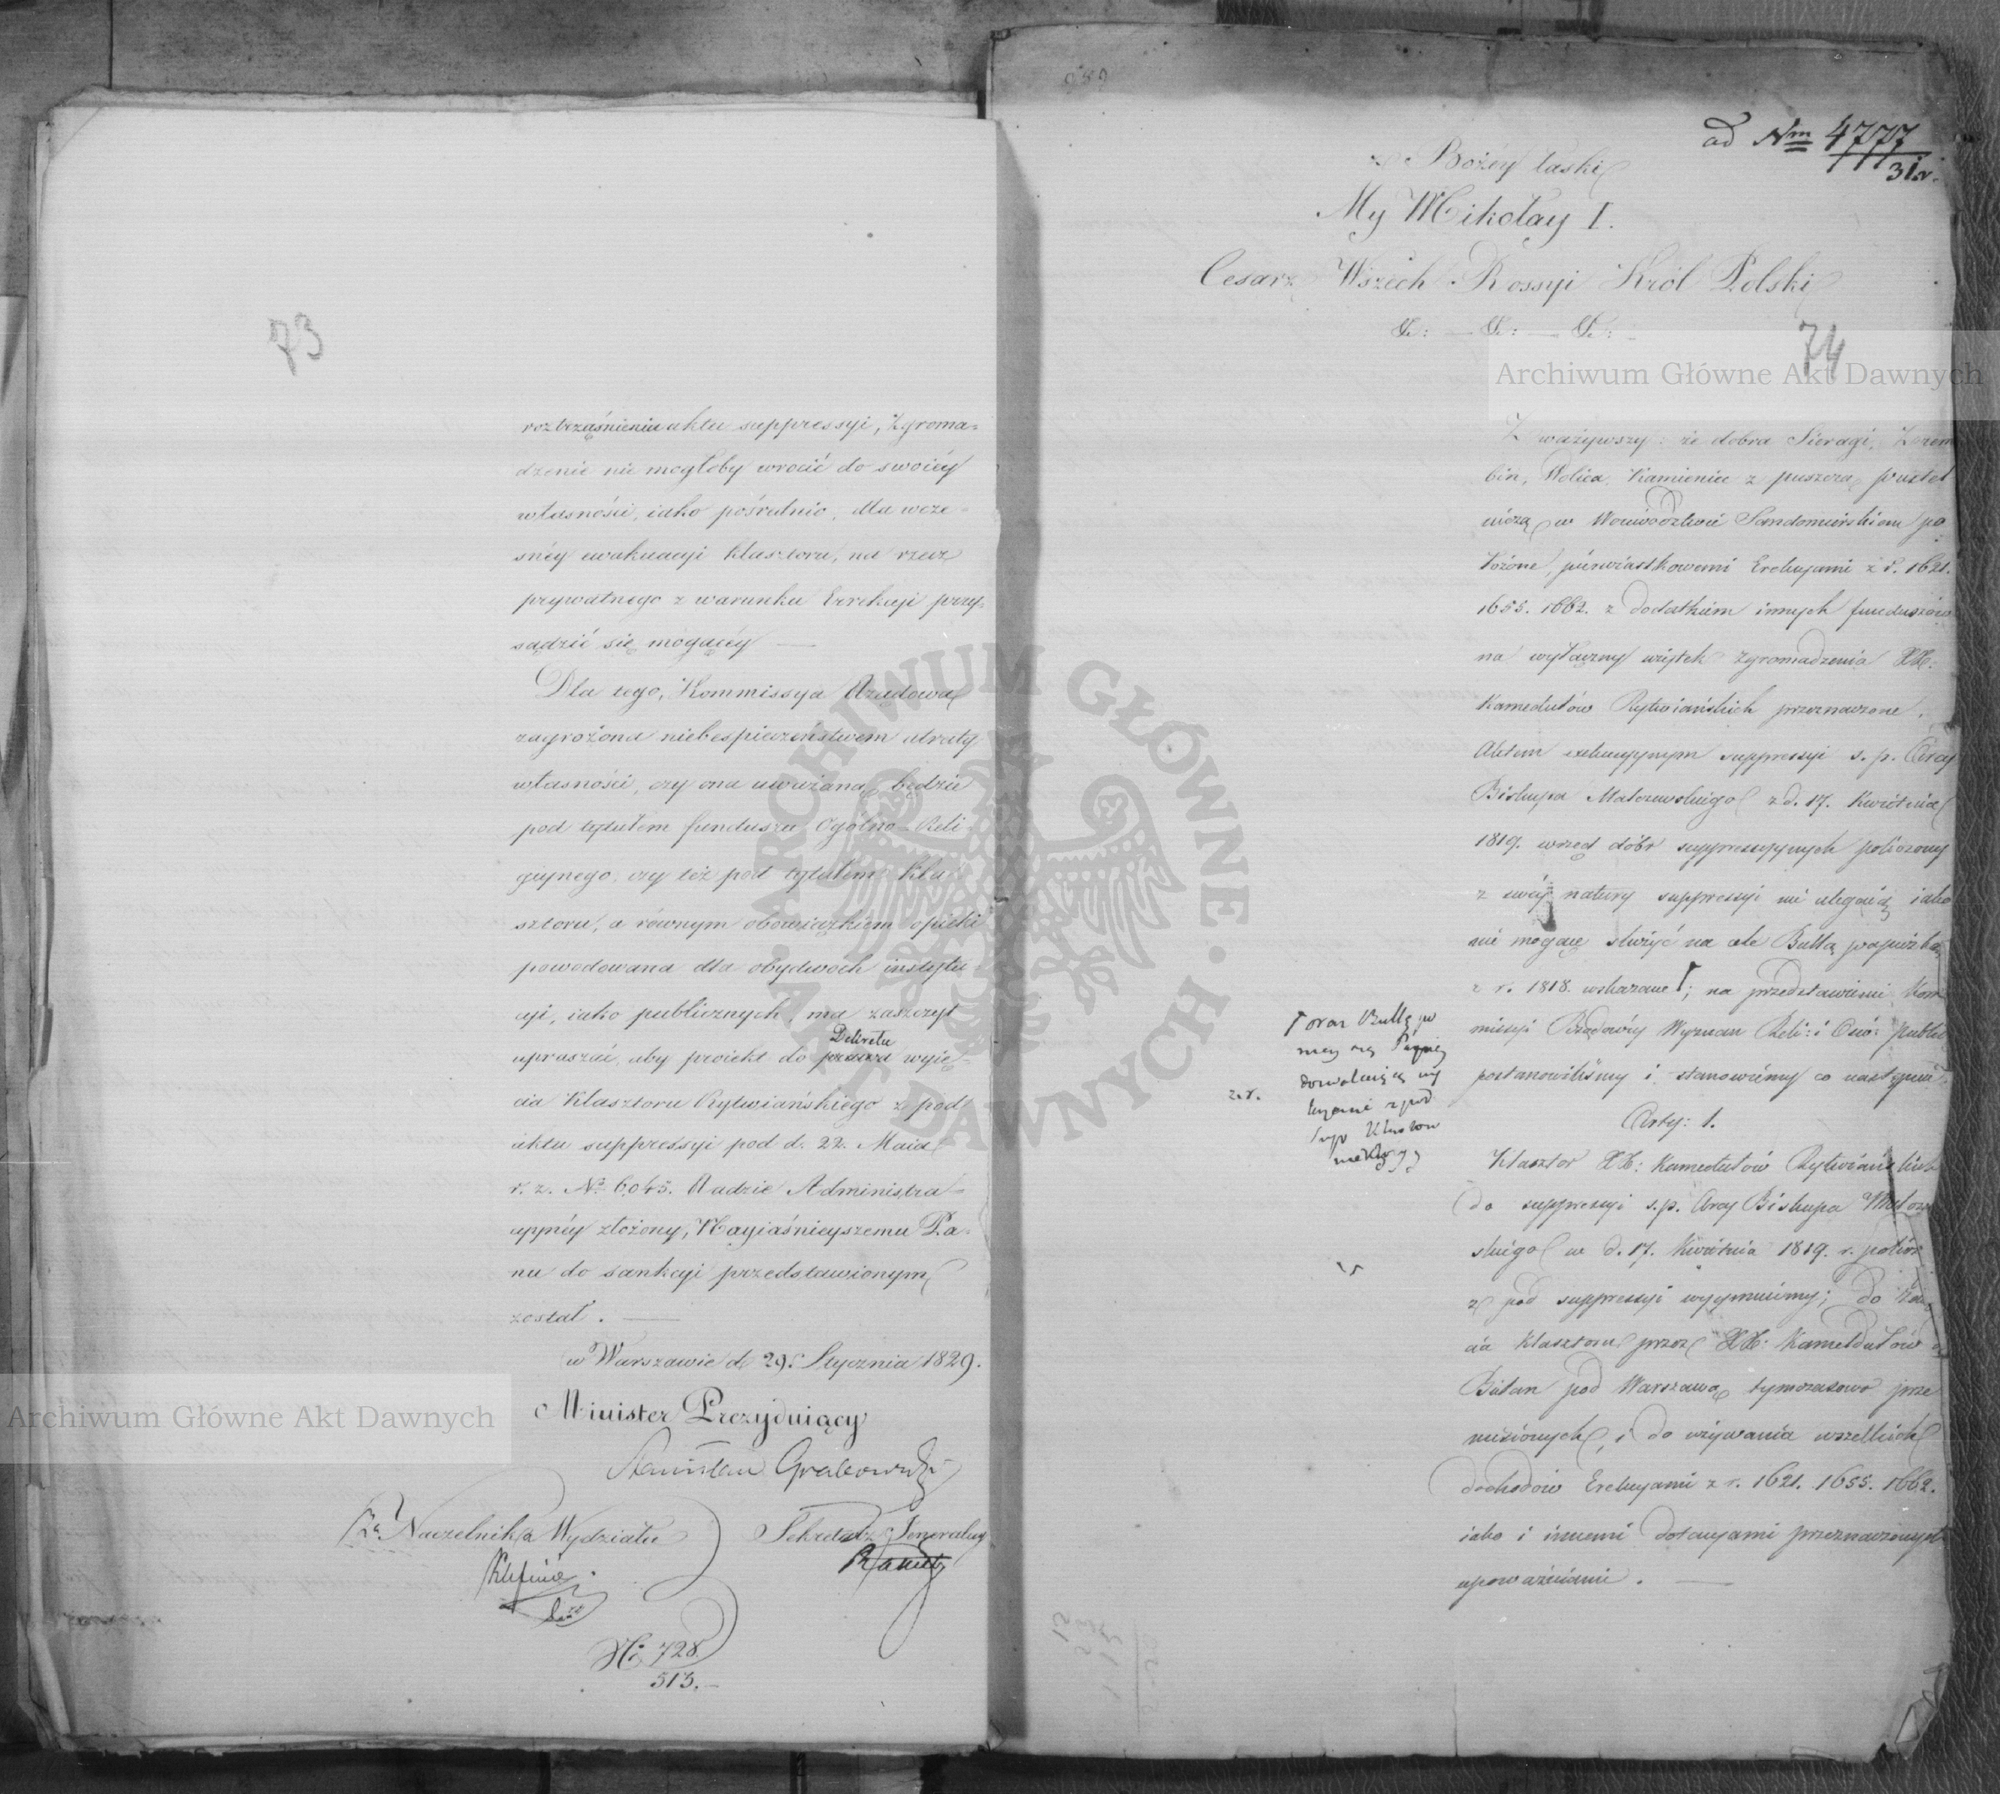 73
roztrząśnieniu aktu suppressyi, Zgroma=
dzenie nie mogłoby wrócić do swoiéy
własności, iako pośrednio, dla wcze=
snéy ewakuacyi klasztoru, na rzecz
prywatnego z warunku Erekcyi przy=
sądzić się mogącéy —
Dla tego, Kommissya Rządowa
zagrożona niebespieczeństwem utraty
własności, czy ona uważaną będzie
pod tytułem funduszu Ogólno-Reli
giynego, czy też pod tytułem kla=
sztoru, a równym obowiązkiem opieki
powodowana dla obydwóch instytu=
cyi, iako publicznych, ma zaszczyt
upraszać, aby proiekt do Dekretu wyię=
cia Klasztoru Rytwiańskiego z pod
aktu suppressyi pod d. 22. Maia
r. z. No. 6,045. Radzie Administra=
cyynéy złożony, Nayiaśnieyszemu Pa=
nu do sankcyi przedstawionym
został. —
w Warszawie d. 29. Stycznia 1829.
Minister Prezyduiący
Stanisław Grabowski
Za Naczelnika Wydziału
Sekretarz Jeneralny
No 728
513.—
ad Nm 4777
31 r.
z Bożéy łaski
My Mikołay I.
Cesarz Wszech Rossyi Król Polski
&: — &: — &: —
74
Archiwum Główne Akt Dawnych
Zważywszy: że dobra Sieragi, Zrem
bin, Wolica, Kamieniec z puszczą pustel
niczą w Woiewództwie Sandomirskiem po
łożone, pierwiastkowemi Erekcyami z r. 1621.
1655. 1662. z dodatkiem innych funduszów
na wyłączny użytek Zgromadzenia XX:
Kamedułów Rytwiańskich przeznaczone,
Aktem exekucyynym suppressyi s. p. Arcy
Biskupa Malczewskiego z d. 17. Kwietnia
1819. w rzęd dóbr suppressyynych policzony
z swéy natury suppressyi nie ulegaią, iako
nie mogące służyć na cele Bullą papiezką
z r. 1818. wskazane; na przedstawienie Kom
missyi Rządowéy Wyznan Reli: i Ośw: publi
postanowiliśmy i stanowiémy co następuie
oraz Bullę
dozwalaiącą wy
z pod
z.r.
Arty: 1.
Klasztor XX: Kamedułów Rytwiańskich
do suppressyi s.p. Arcy Biskupa Malczew
skiego w d. 17. Kwietnia 1819. r. policz
z pod suppressyi wyymuiemy; do
cia Klasztoru przez XX: Kamedułów z
Bielan pod Warszawą tymczasowo prze
niesionych, i do używania wszelkich
dochodów Erekcyami z r. 1621. 1655. 1662.
iako i innemi dotacyami przeznaczonych
upoważniamy. —
Archiwum Główne Akt Dawnych
ARCHIWUM GŁÓWNE AKT DAWNYCH